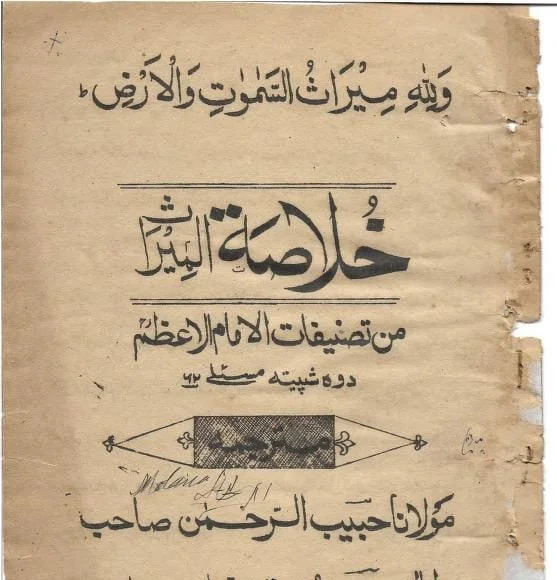 وَلِلّٰهِ مِیْرَاثُ السَّمٰوٰتِ وَالْاَرْضِ ط
خُلاصَة المِیْرَاث
من تصنیفات الامام الاعظمؒ
دوه شپیته مسئلے ۶۲
مترجمه
Molana
مَوْلانا حبیب الرَّحمٰن صاحب